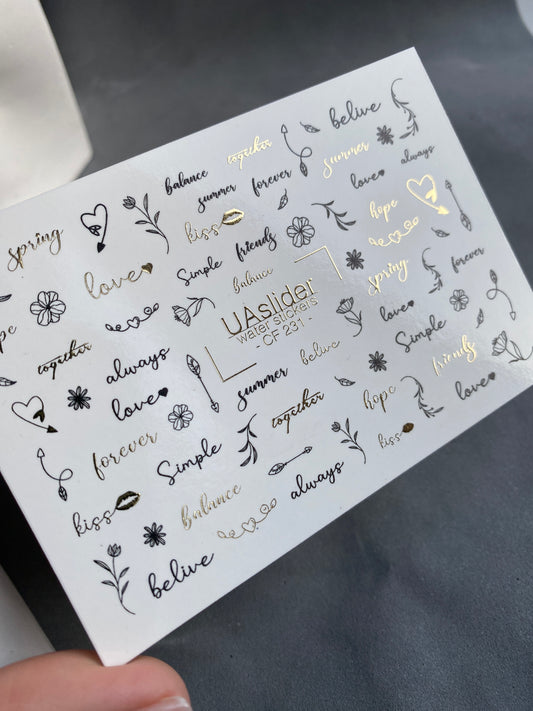 belive
together
balance
summer
always
summer
forever
love
kiss
hope
spring
friends
Simple
love
balance
spring
forever
UAslider
water stickers
- CF 231 -
love
together
always
Simple
belive
friends
love
summer
hope
love
together
forever
Simple
kiss
always
balance
kiss
belive